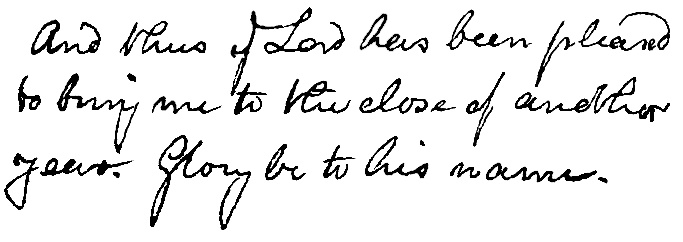 And thus ye Lord has been pleased
to bring me to the close of another
year. Glory be to his name.